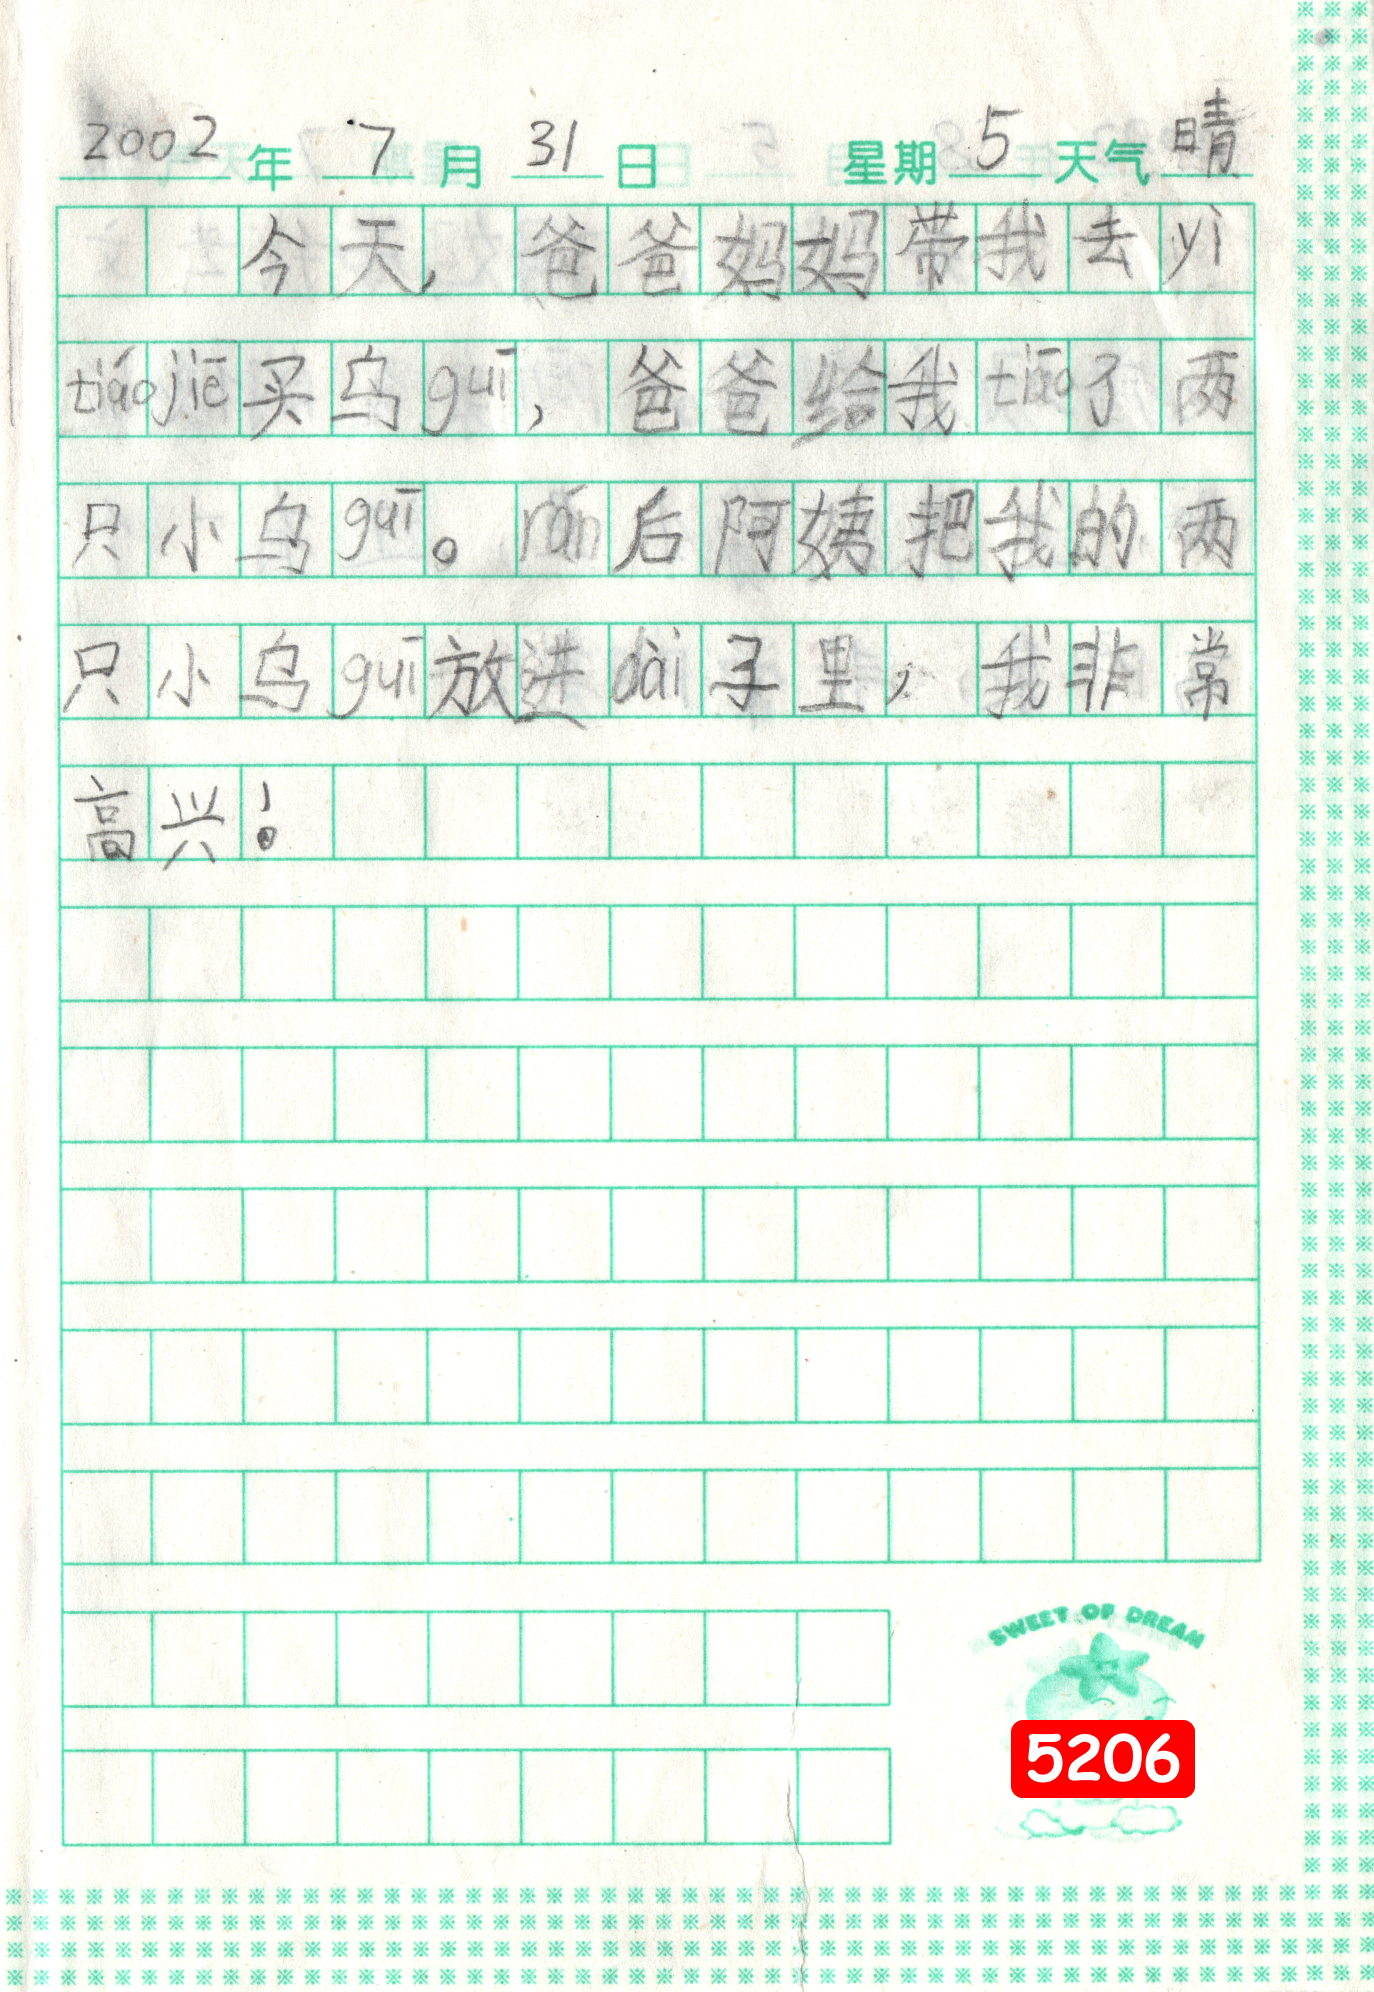 2002年 7月 31日 星期5 天气晴
今天,爸爸妈妈带我去yì
tiáojiē买乌guī,爸爸给我tiāo了两
只小乌guī。rán后阿姨把我的两
只小乌guī放进dài子里,我非常
高兴!
SWEET OF DREAM
5206